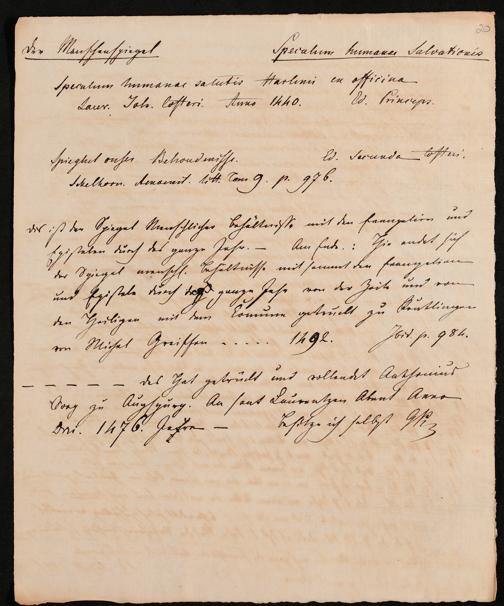 20
Der Menschenspiegel Speculum humanae Salvationis
Speculum humanae salutis Harlemi ex officina
Laur. Joh. Costeri. Anno 1440. Ed. Princeps.
Spieghel onser Behoudnisse. Ed. Secunda Costeri.
Schelhorn. Amoenit. litt. Tom 9. p. 976.
das ist der Spiegel Menschlicher Behältnisse mit den Evangelien und
Episteln durch das ganze Jahr. — Am Ende: Hie endet sich
der Spiegel menschl. Behältnisse mit sammt den Evangelien
und Episteln durch das ganze Jahr von der Zeite und von
den Heiligen mit dem Comun getruckt zu Reutlingen
von Michel Greiffen ..... 1492. Ibid. p. 984.
— — — — — — das Hat getruckt und vollendet Anthonius
Sorg zu Augspurg. An sant Laurentzen Abent Anno
Dni. 1476. Jahre — Besitze ich selbst